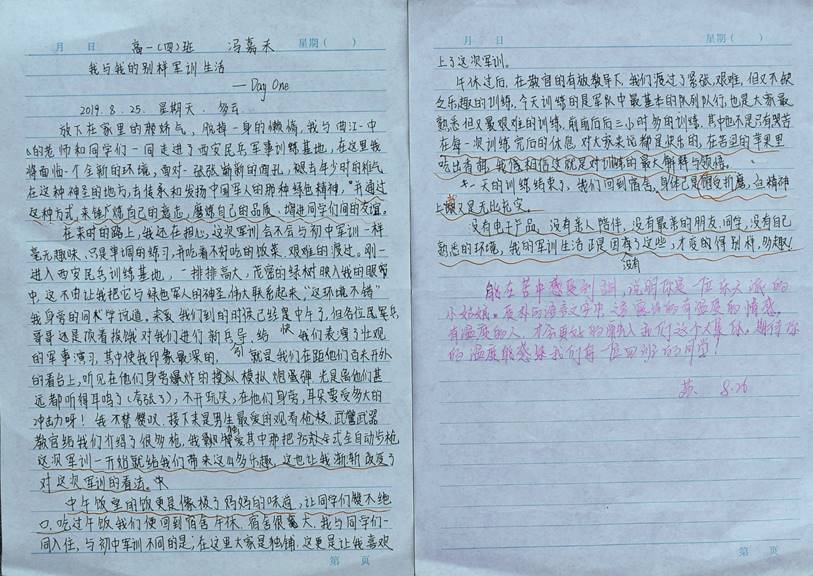 月 日 高一(四)班 冯嘉禾 星期( )
我与我的别样军训生活
——Day One
2019.8.25. 星期天. 多云
放下在家里的那娇气，脱掉一身的懒惰，我与曲江一中
的老师和同学们一同走进了西安民兵军事训练基地，在这里我
将面临一个全新的环境，面对一张张崭新的面孔，褪去年少时的稚气
在这种神圣的地方，去传承和发扬中国军人的那种绿色精神，并通过
这种方式，来锤炼自己的意志，磨炼自己的品质，增进同学们间的友谊。
在来时的路上，我还在担心，这次军训会不会与初中军训一样
毫无趣味，只是单调的练习，并吃着不好吃的饭菜，艰难的渡过。刚一
进入西安民兵训练基地，一排排高大，茂密的绿树映入我的眼帘
中，这不由让我把它与绿色军人的神圣伟大联系起来，“这环境不错”
我身旁的同学说道。来到我们到的时候已经是中午了，但各位民兵
哥哥还是顶着披饿对我们进行新兵导，给 我们表演了壮观
的军事演习，其中使我印象最深的， 就是我们在距他们百米开外
的看台上，听见在他们身旁爆炸的模拟烟雾弹，光是离他们甚
远都听得耳鸣了(夸张了)，不开玩笑，在他们身旁，耳朵要受多大的
冲击力呀！我不禁赞叹，接下来是男生最爱的观看枪枝，武警武器
教官给我们介绍了很多枪，我 其中那把95式全自动步枪
这次军训一开始就给我们带来这么多乐趣，这也让我渐渐改变了
对这次军训的看法。中
中午饭堂的饭更是像极了妈妈的味道，让同学们赞不绝
口，吃过午饭我们便回到宿舍午休，宿舍很宽大，我与同学们一
同入住，与初中军训不同的是：在这里大家是独铺，这更是让我喜欢
第 页
星期( )
上了这次军训。
午休过后，在教官的有效教导下，我们渡过了紧张，艰难，但又不缺
乏乐趣的训练，今天训练的是军队中最基本的队列队行，也是大家最
熟悉但又最艰难的训练，前前后后三小时多的训练，其中也不是只有哭苦
在每一次训练完后的休息，对大家来说都是快乐的，在苦涩的苹果里
吃出香甜，我深相信这就是对训练的最大解释与领悟。
一天的训练结束了，我们回到宿舍，身体已是饱受折磨，在精神
上 又是无比充实。
没有电子产品，没有亲人陪伴，没有最亲的朋友，同学，没有自己
熟悉的环境，我的军训生活正是因有了这些，才变的得别样，多趣！
没有
能在苦中感受到甜，说明你是一位乐天派的
小姑娘。反朴的语言文字中，适露出的有温度的情感，
有温度的人，才会更好的融入我们这个大集体。期待你
的温度能感染我们每一位四班的同学！
苏 8.26
第 页